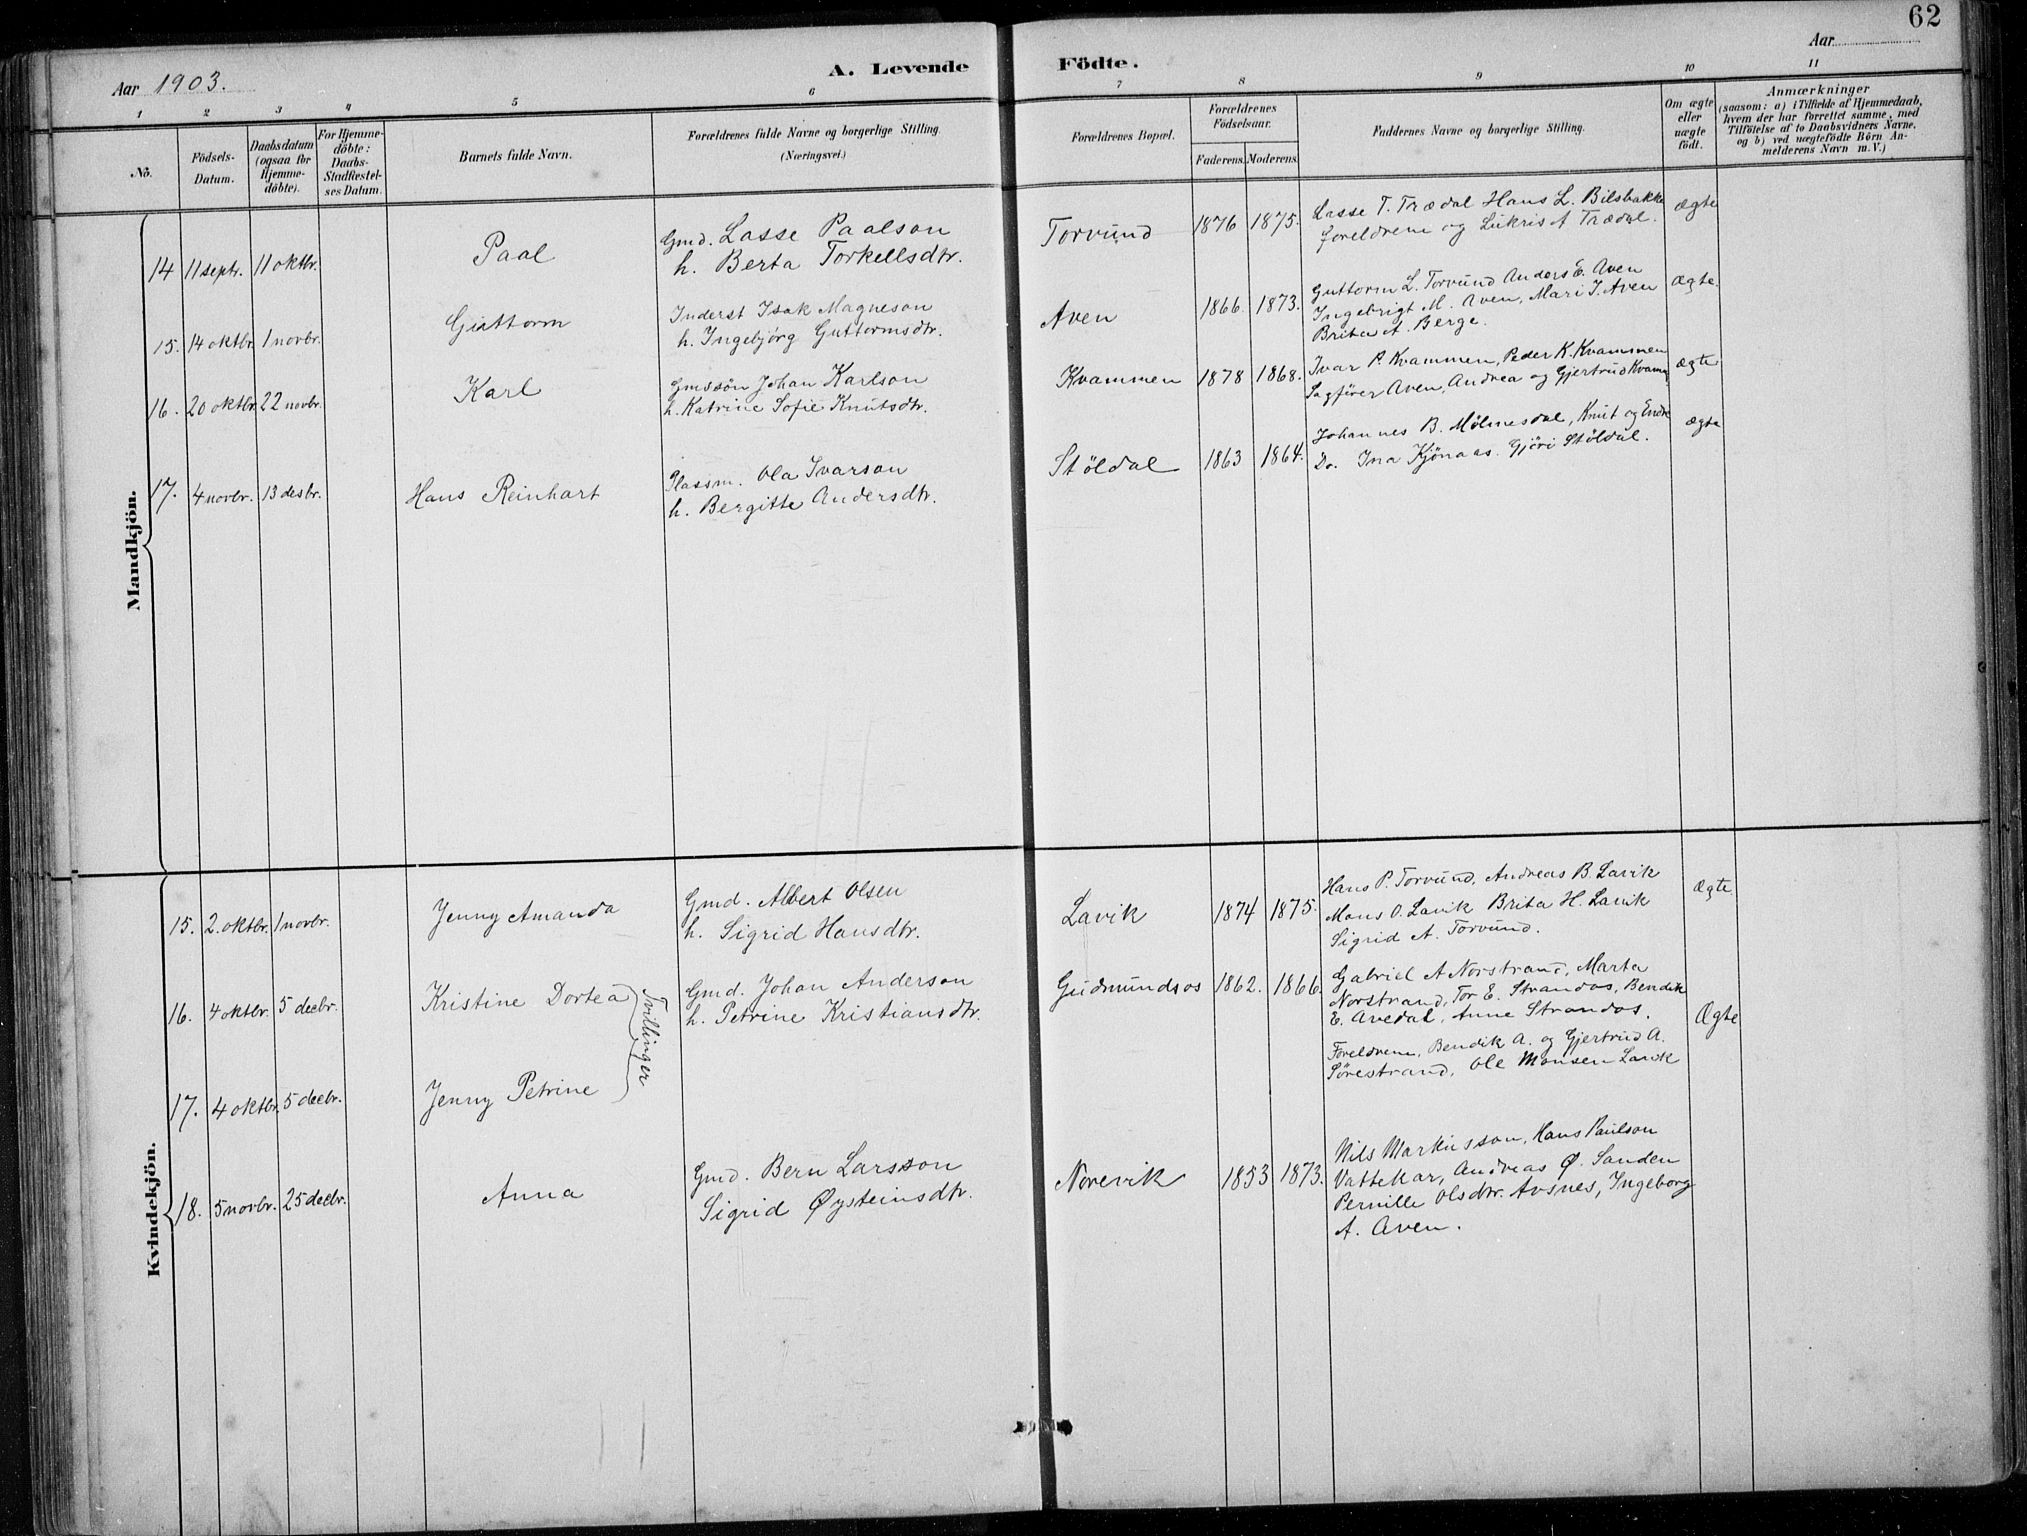 62
Aar 1903.
A. Levende Födte.
Aar
1 2 3 4 5 6 7 8 9 10 11
No.
Födsels-Datum.
Daabsdatum (ogsaa for Hjemme-döbte).
For Hjemme-döbte: Daabs-Stadfæstel-ses Datum.
Barnets fulde Navn.
Forældrenes fulde Navne og borgerlige Stilling.
(Næringsvei.)
Forældrenes Bopæl.
Forældrenes Födselsaar.
Faderens. Moderens.
Faddernes Navne og borgerlige Stilling.
Om ægte eller uægte födt.
Anmærkninger
(saasom: a) i Tilfælde af Hjemmedaab,
hvem der har forrettet samme, med
Tilföielse af to Daabsvidners Navne,
og b) ved uægtefödte Börn An-
melderens Navn m. V.)
Mandkjön.
14 11 septr. 11 oktbr. Paal
Gmd. Lasse Paalson
h. Berta Torkellsdtr.
Torvund 1876 1875.
Lasse T. Trædal Hans L. Bilsbakke
foreldrene og Lukris A Trædal.
ægte
15. 14 oktbr. 1 novbr. Guttorm
Inderst Isak Magneson
h. Ingebjørg Guttormsdtr.
Aven 1866 1873.
Guttorm L. Torvund Anders E. Aven
Ingebrigt M. Aven, Mari I. Aven
Brita A. Berge.
ægte.
16. 20 oktbr. 22 novbr. Karl
Gmssön Johan Karlson
h. Katrine Sofie Knutsdtr.
Kvammen 1878 1868.
Ivar P. Kvammen, Peder K. Kvammen
Sagfører Aven, Andrea og Gjertrud Kvamm
ægte
17. 4 novbr. 13 desbr. Hans Reinhart
Plassm. Ola Ivarson
h. Bergitte Andersdtr.
Stöldal 1863 1864.
Johannes B. Mölmesdal, Knut og Endre
Do. Ina Kjönaas. Gjöri Stöldal.
ægte
Kvindekjön.
15. 2. oktbr. 1 novbr. Jenny Amanda
Gmd. Albert Olsen
h. Sigrid Hansdtr.
Lavik 1874 1875.
Hans P. Torvund, Andreas B. Lavik
Mons O. Lavik Brita H. Lavik
Sigrid A. Torvund.
Ægte.
16. 4 oktbr. 5 decbr. Kristine Dortea
Tvillinger
Gmd. Johan Anderson
h. Petrine Kristiansdtr.
Gudmundsos 1862. 1866.
Gabriel A Norstrand, Marta
Norstrand, Tor E. Strandos, Bendik
E. Avedal, Anne Strandos.
Ægte
17. 4 oktbr. 5 decbr. Jenny Petrine
Foreldrene, Bendik A. og Gjertrud A.
Sörestrand, Ole Monsen Lavik
18. 5 novbr. 25 decbr. Anna
Gmd. Bern Larsson
Sigrid Øysteinsdtr.
Norevik 1853 1873.
Nils Markusson, Hans Paulson
Vattekar, Andreas Ø. Sanden
Pernille Olsdtr. Avsnes, Ingeborg
A. Aven.